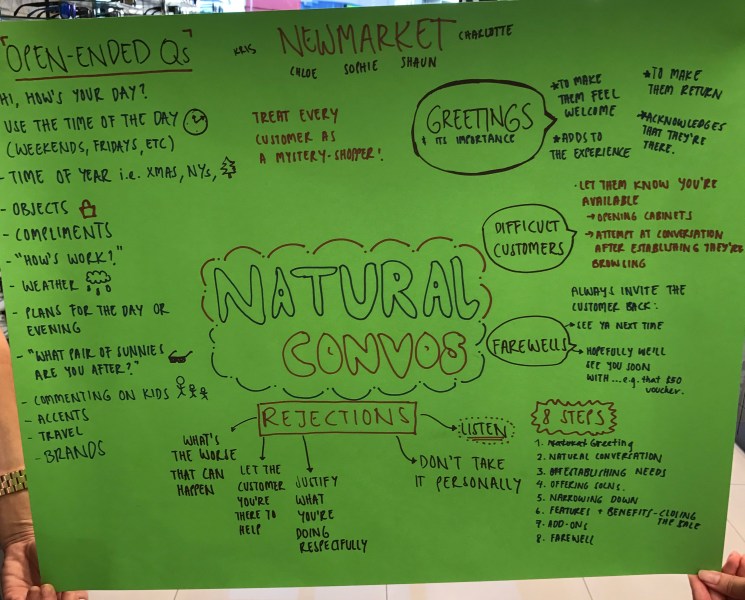 "OPEN-ENDED Qs"
HI, HOW'S YOUR DAY?
USE THE TIME OF THE DAY
(WEEKENDS, FRIDAYS, ETC)
- TIME OF YEAR i.e. XMAS, NYs,
- OBJECTS
- COMPLIMENTS
- "HOW'S WORK?"
- WEATHER
- PLANS FOR THE DAY OR
EVENING
- "WHAT PAIR OF SUNNIES
ARE YOU AFTER?"
- COMMENTING ON KIDS
- ACCENTS
- TRAVEL
- BRANDS
KRIS NEWMARKET CHARLOTTE
CHLOE SOPHIE SHAUN
TREAT EVERY
CUSTOMER AS
A MYSTERY-SHOPPER!
GREETINGS
& ITS IMPORTANCE
*TO MAKE
THEM FEEL
WELCOME
*ADDS TO
THE EXPERIENCE
*TO MAKE
THEM RETURN
*ACKNOWLEDGES
THAT THEY'RE
THERE.
DIFFICULT
CUSTOMERS
• LET THEM KNOW YOU'RE
AVAILABLE
→ OPENING CABINETS
→ ATTEMPT AT CONVERSATION
AFTER ESTABLISHING THEY'RE
BROWLING
NATURAL
CONVOS
FAREWELLS
ALWAYS INVITE THE
CUSTOMER BACK:
→ SEE YA NEXT TIME
→ HOPEFULLY WE'LL
SEE YOU SOON
WITH ... e.g. that $50
voucher.
REJECTIONS
WHAT'S
THE WORSE
THAT CAN
HAPPEN
LET THE
CUSTOMER
YOU'RE
THERE TO
HELP
JUSTIFY
WHAT
YOU'RE
DOING
RESPECFULLY
DON'T TAKE
IT PERSONALLY
LISTEN
8 STEPS
1. Greeting
2. NATURAL CONVERSATION
3. ESTABLISHING NEEDS
4. OFFERING SOLNS.
5. NARROWING DOWN
6. FEATURES + BENEFITS - CLOSING
THE SALE
7. ADD-ONS
8. FAREWELL